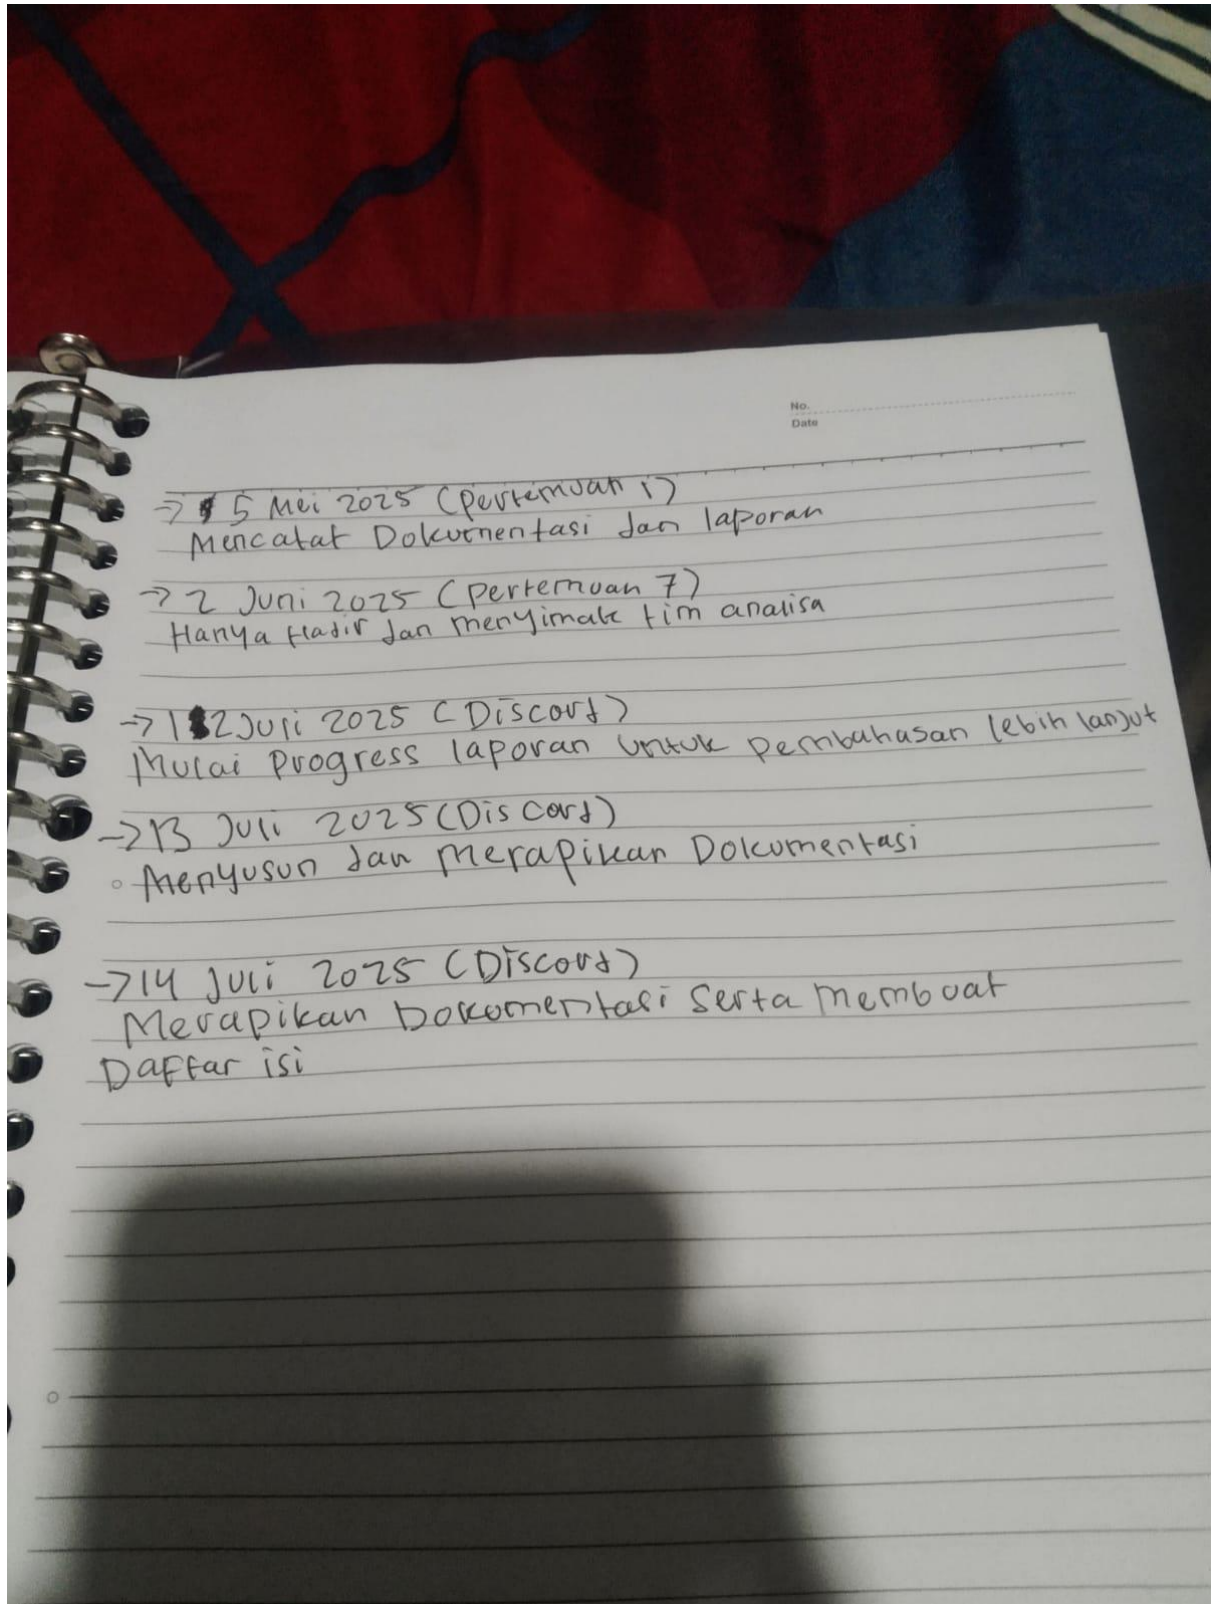 No.
Date
→ 5 Mei 2025 (Pertemuan 1)
Mencatat Dokumentasi dan laporan
→ 2 Juni 2025 (Pertemuan 7)
Hanya Hadir dan menyimak tim analisa
→ 12 Juli 2025 (Discord)
Mulai Progress laporan untuk pembahasan lebih lanjut
→ 13 Juli 2025 (Discord)
Menyusun dan Merapikan Dokumentasi
→ 14 Juli 2025 (Discord)
Merapikan Dokumentasi serta Membuat
Daftar isi